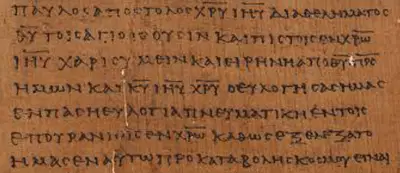 ΠΑΥΛΟΣ ΑΠΟΣΤΟΛΟΣ ΧΡ̅Υ̅ ΙΗ̅Υ̅ ΔΙΑ ΘΕΛΗΜΑΤΟΣ
Θ̅Υ̅ ΤΟΙΣ ΑΓΙΟΙΣ ΟΥΣΙΝ ΚΑΙ ΠΙΣΤΟΙΣ ΕΝ ΧΡ̅Ω̅
ΙΗ̅Υ̅ ΧΑΡΙΣ ΥΜΕΙΝ ΚΑΙ ΕΙΡΗΝΗ ΑΠΟ Θ̅Υ̅ ΠΡ̅Σ̅
ΗΜΩΝ ΚΑΙ Κ̅Υ̅ ΙΗ̅Υ̅ ΧΡ̅Υ̅ Ο ΕΥΛΟΓΗΣΑΣ ΗΜΑΣ
ΕΝ ΠΑΣΗ ΕΥΛΟΓΙΑ ΠΝΕΥΜΑΤΙΚΗ ΕΝ ΤΟΙΣ
ΕΠΟΥΡΑΝΙΟΙΣ ΕΝ ΧΡ̅Ω̅ ΚΑΘΩΣ ΕΞΕΛΕΞΑΤΟ
ΗΜΑΣ ΕΝ ΑΥΤΩ ΠΡΟ ΚΑΤΑΒΟΛΗΣ ΚΟΣΜΟΥ ΕΙΝΑΙ